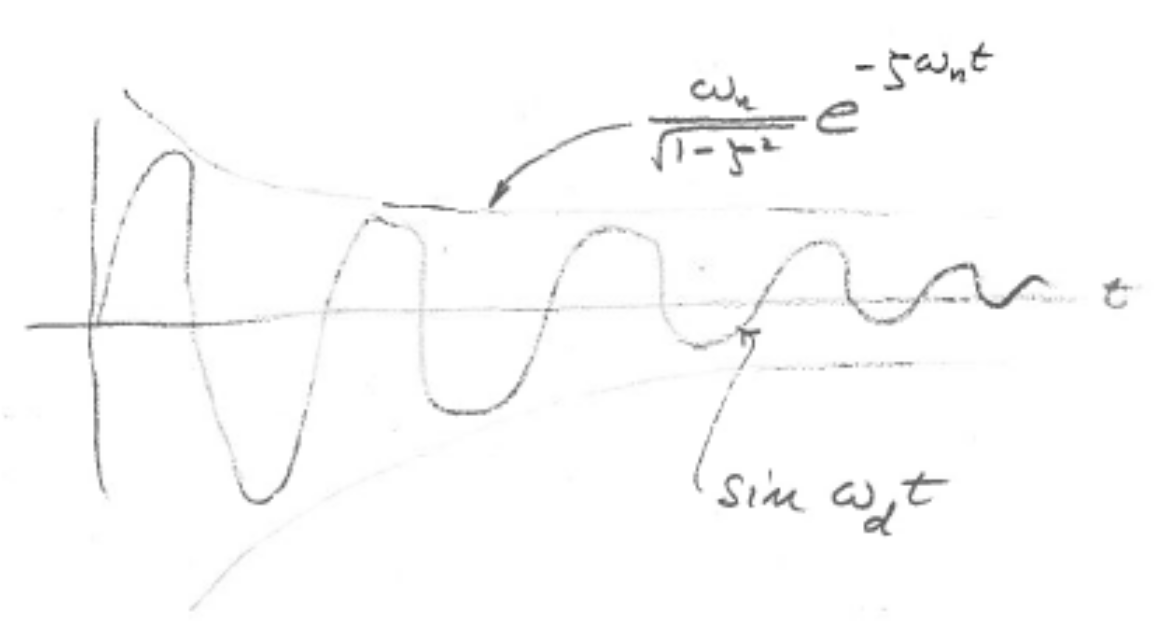 ωₙ/√(1-ζ²) e^(-ζωₙt)
t
sin ω_d t